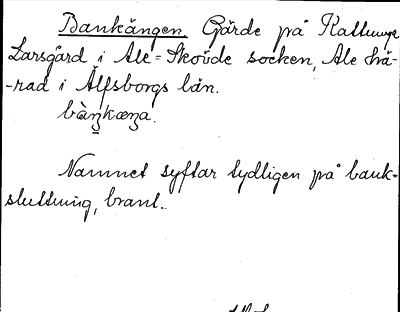 Bankängen. Gärde på Kattunga
Larsgård i Ale-Skövde socken, Ale hä-
-rad i Älfsborgs län.
bàŋkæŋa.
Namnet syftar tydligen på bank-
sluttning, brant.